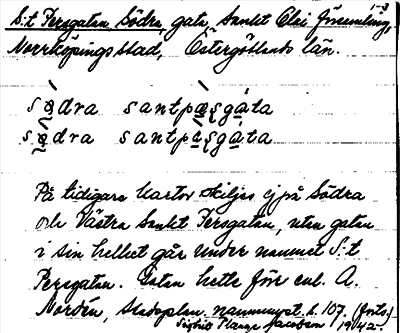 1-3
S:t Persgatan Södra, gata, Sankt Olai församling,
Norrköpings stad, Östergötlands län.
södra santpæşgáta
södra santpèşgáta
På tidigare kartor skiljes ej på Södra
och Västra Sankt Persgatan, utan gatan
i sin helhet går under namnet S:t
Persgatan. Gatan hette förr enl. A.
Nordén, Stadsplan. namnmyst. s. 107. (forts.)
Sigbrit Plaenge Jacobson 1942.